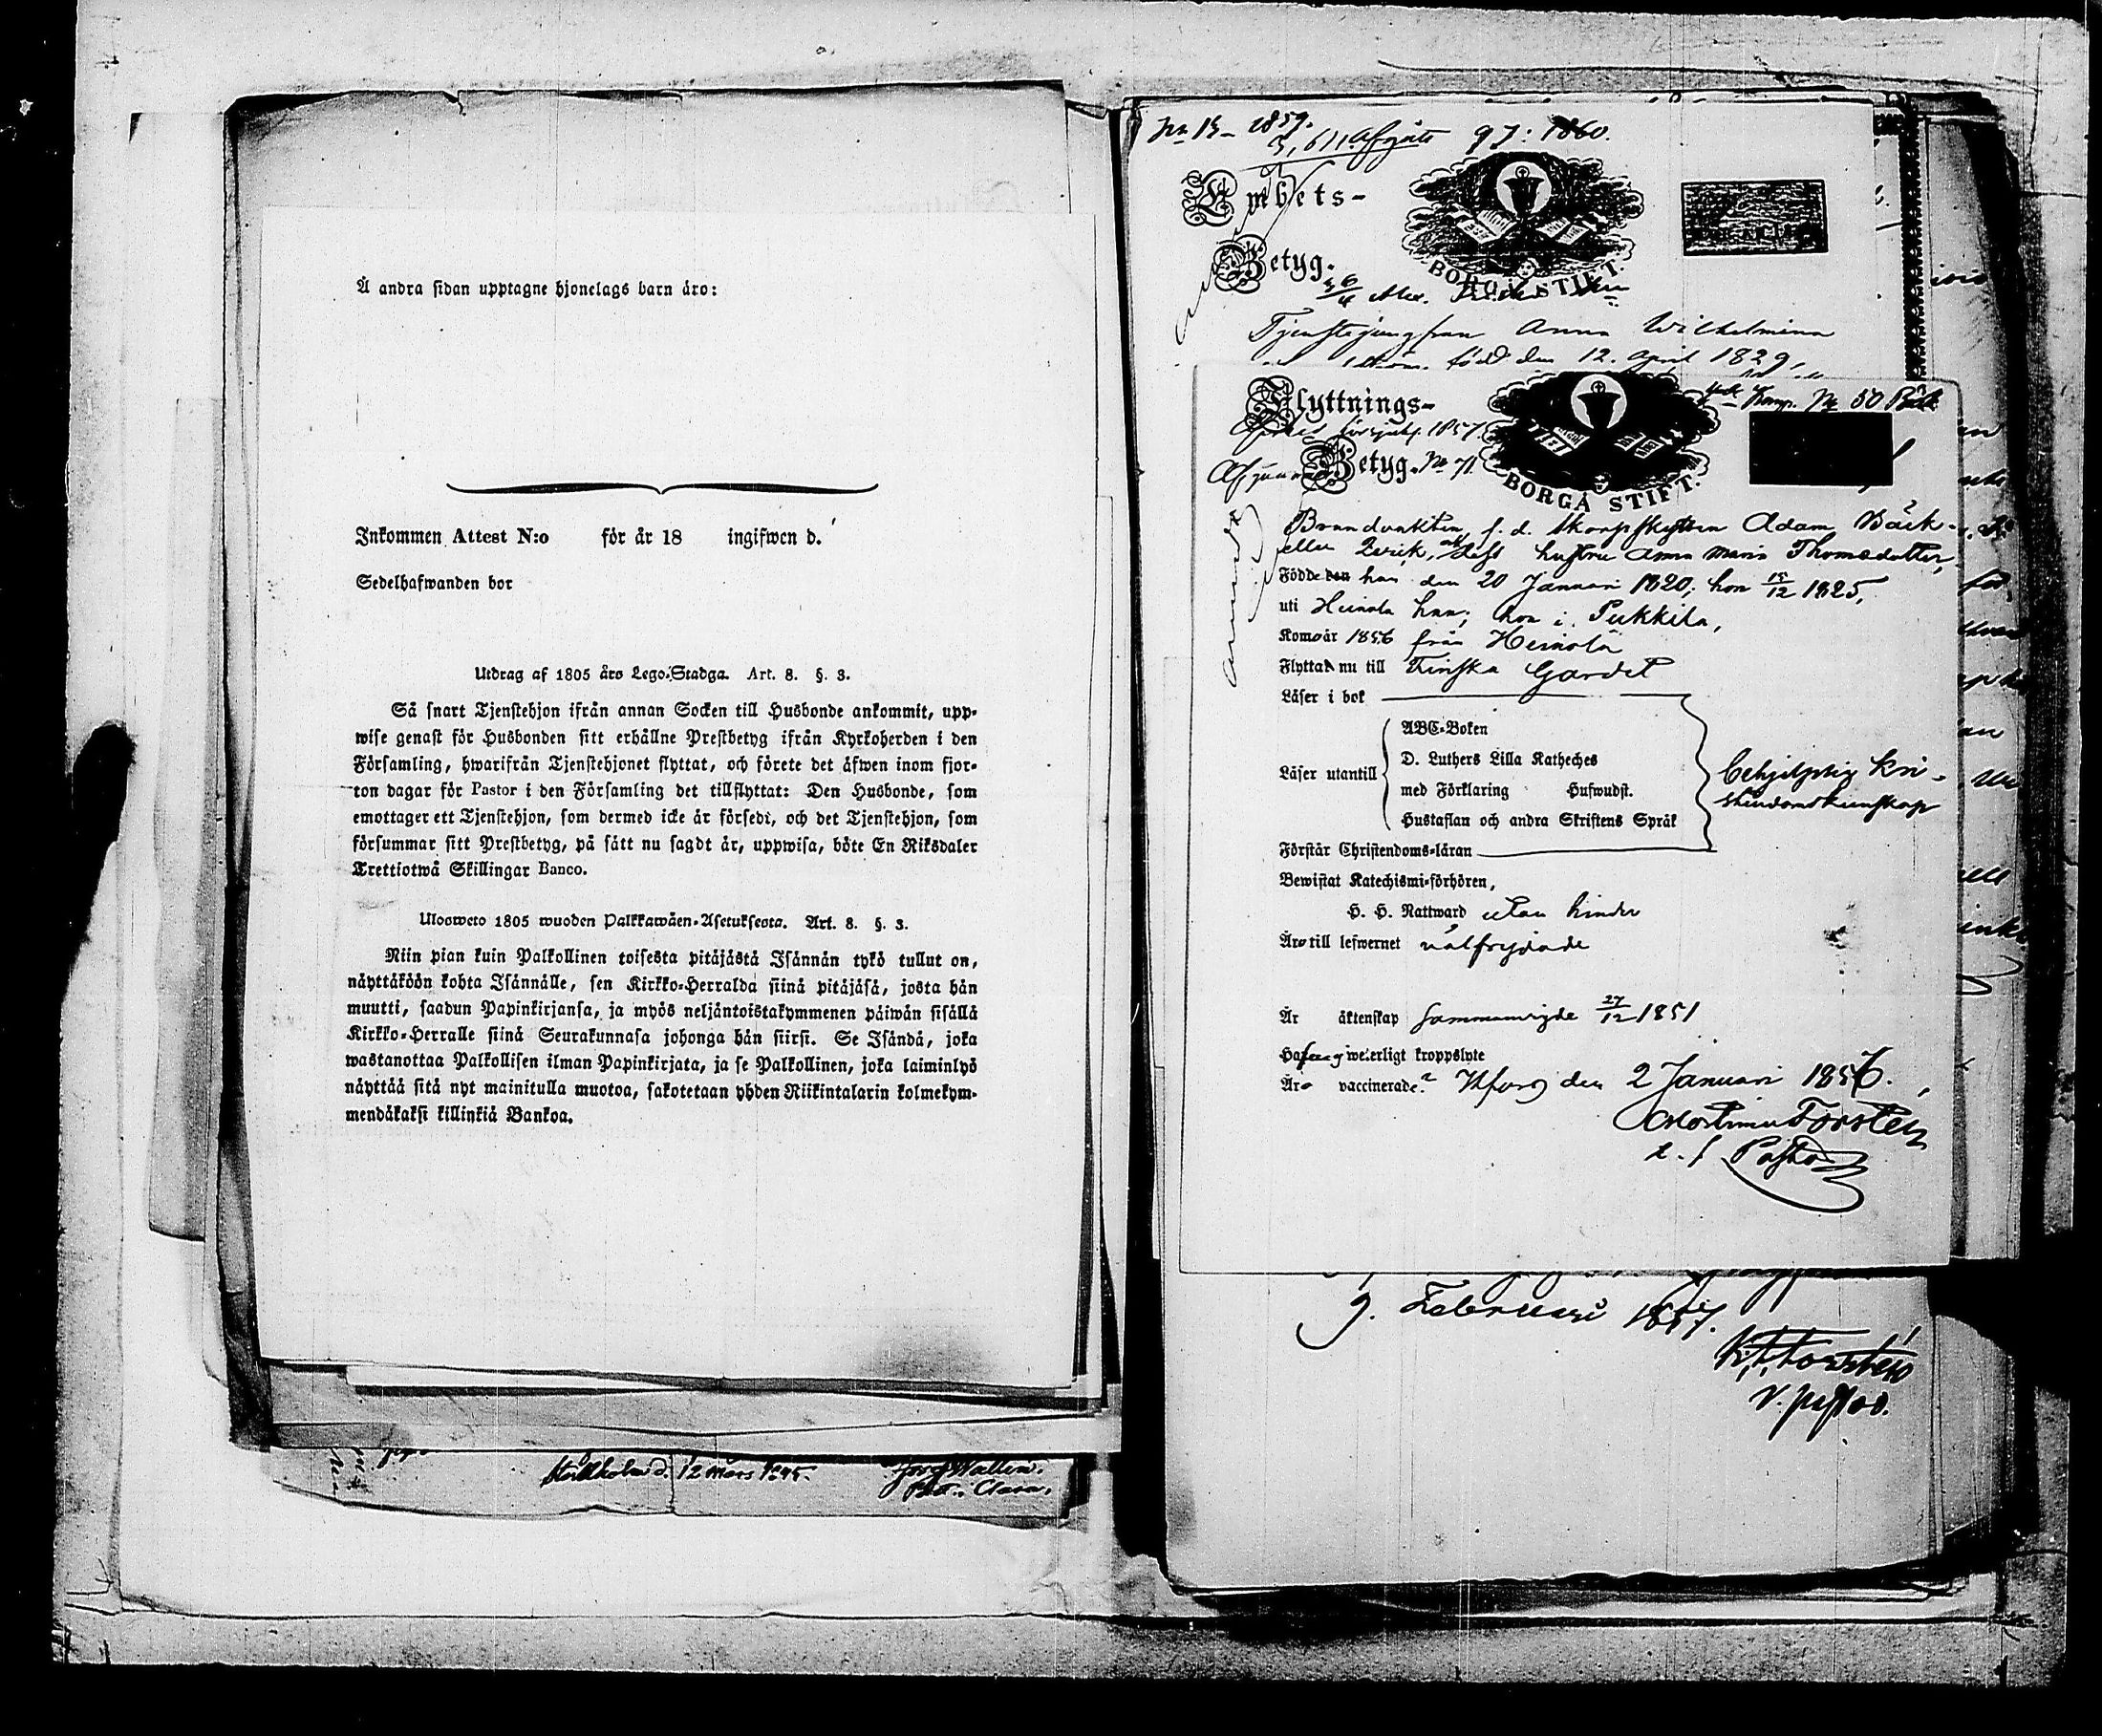 Å andra sidan upptagne hjonelags barn äro:
Inkommen Attest N:o för år 18 ingifwen d.
Sedelhafwanden bor
Utdrag af 1805 års Lego-Stadga. Art. 8. §. 3.
Så snart Tjenstehjon ifrån annan Socken till Husbonde ankommit, upp-
wise genast för Husbonden sitt erhållne Prestbetyg ifrån Kyrkoherden i den
Församling, hwarifrån Tjenstehjonet flyttat, och förete det äfwen inom fjor-
ton dagar för Pastor i den Församling det tillflyttat: Den Husbonde, som
emottager ett Tjenstehjon, som dermed icke är försedt, och det Tjenstehjon, som
försummar sitt Prestbetyg, på sätt nu sagdt är, uppwisa, böte En Riksdaler
Trettiotwå Skillingar Banco.
Ulosweto 1805 wuoden Palkkawäen-Asetuksesta. Art. 8. §. 3.
Niin pian kuin Palkollinen toisesta pitäjästä Isännän tykö tullut on,
näyttäköön kohta Isännälle, sen Kirkko-Herralda siinä pitäjäsä, josta hän
muutti, saadun Papinkirjansa, ja myös neljäntoistakymmenen päiwän sisällä
Kirkko-Herralle siinä Seurakunnasa johonga hän siirsi. Se Isändä, joka
wastanottaa Palkollisen ilman Papinkirjata, ja se Palkollinen, joka laiminlyö
näyttää sitä nyt mainitulla muotoa, sakotetaan yhden Riikintalarin kolmekym-
mendäkaksi killinkiä Bankoa.
Stockholm d. 12 Mars 1845.
Clara.
No 15- 1859.
97: 1860.
Embets-
Betyg.
BORGÅ STIFT.
Tjenstejungfrun Anna Wilhelmina
född den 12. April 1829,
Flyttnings-
1857
Betyg. No 71
BORGÅ STIFT.
Komp. No 50
Brandvakten f. d. Skarpskytten Adam Bäck-
eller Zerik, och dess hustru Anna Maria Thomasdotter,
Födde den han den 20 Januari 1820; hon 15/12 1825,
uti Heinola han; hon i Pukkila,
Komo år 1856 från Heinola
Flytta nu till Finska Gardet
Läser i bok
ABC-Boken
D. Luthers Lilla Katheches
Läser utantill
med Förklaring Hufwudst.
Hustaflan och andra Skriftens Språk
behjelplig kri-
stendomskunskap
Förstår Christendoms-läran
Bewistat Katechismi-förhören,
H. H. Nattward utan hinder
Äro till lefwernet välfrejdade
Är äktenskap sammanvigde 27/12 1851
Hafwa ej weterligt kroppslyte
Äro vaccinerade? Hfors den 2 Januari 1857.
Forstén
Pastor
9. Februari 1857.
Forstén
v. pastor.